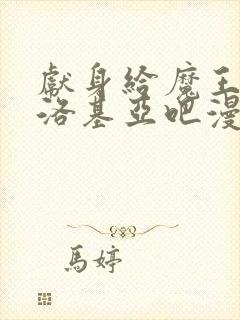 獻身給魔王
洛基亞吧漫
馬婷